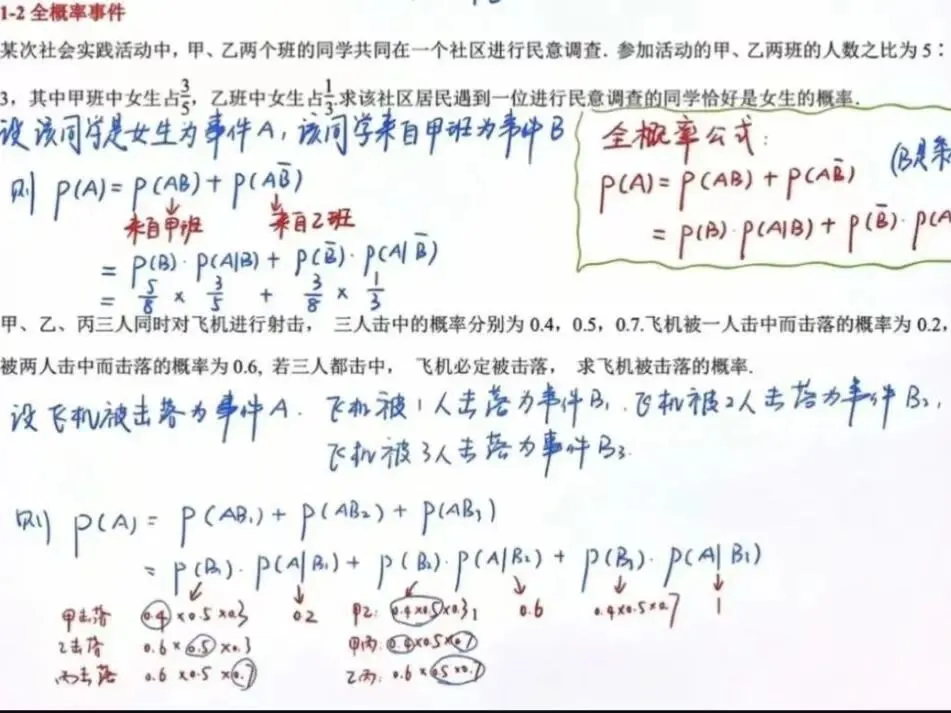 1-2 全概率事件
某次社会实践活动中，甲、乙两个班的同学共同在一个社区进行民意调查．参加活动的甲、乙两班的人数之比为 5：
3，其中甲班中女生占3/5，乙班中女生占1/3.求该社区居民遇到一位进行民意调查的同学恰好是女生的概率．
设该同学是女生为事件A，该同学来自甲班为事件B
则 P(A)= P(AB)+ P(AB̄)
来自甲班 来自乙班
= P(B)·P(A|B)+ P(B̄)·P(A|B̄)
= 5/8 × 3/5 + 3/8 × 1/3
全概率公式：
(B是
P(A)= P(AB)+ P(AB̄)
= P(B)·P(A|B)+ P(B̄)·P(A
甲、乙、丙三人同时对飞机进行射击， 三人击中的概率分别为 0.4，0.5，0.7.飞机被一人击中而击落的概率为 0.2，
被两人击中而击落的概率为 0.6, 若三人都击中， 飞机必定被击落， 求飞机被击落的概率.
设飞机被击落为事件A．飞机被1人击落为事件B₁．飞机被2人击落为事件B₂，
飞机被3人击落为事件B₃.
则 P(A) = P(AB₁)+ P(AB₂)+ P(AB₃)
= P(B₁)·P(A|B₁)+ P(B₂)·P(A|B₂)+ P(B₃)·P(A|B₃)
甲击落 0.4×0.5×0.3 0.2 甲乙：0.4×0.5×0.3 0.6 0.4×0.5×0.7 1
乙击落 0.6×0.5×0.3 甲丙：0.4×0.5×0.7
丙击落 0.6×0.5×0.7 乙丙：0.6×0.5×0.7